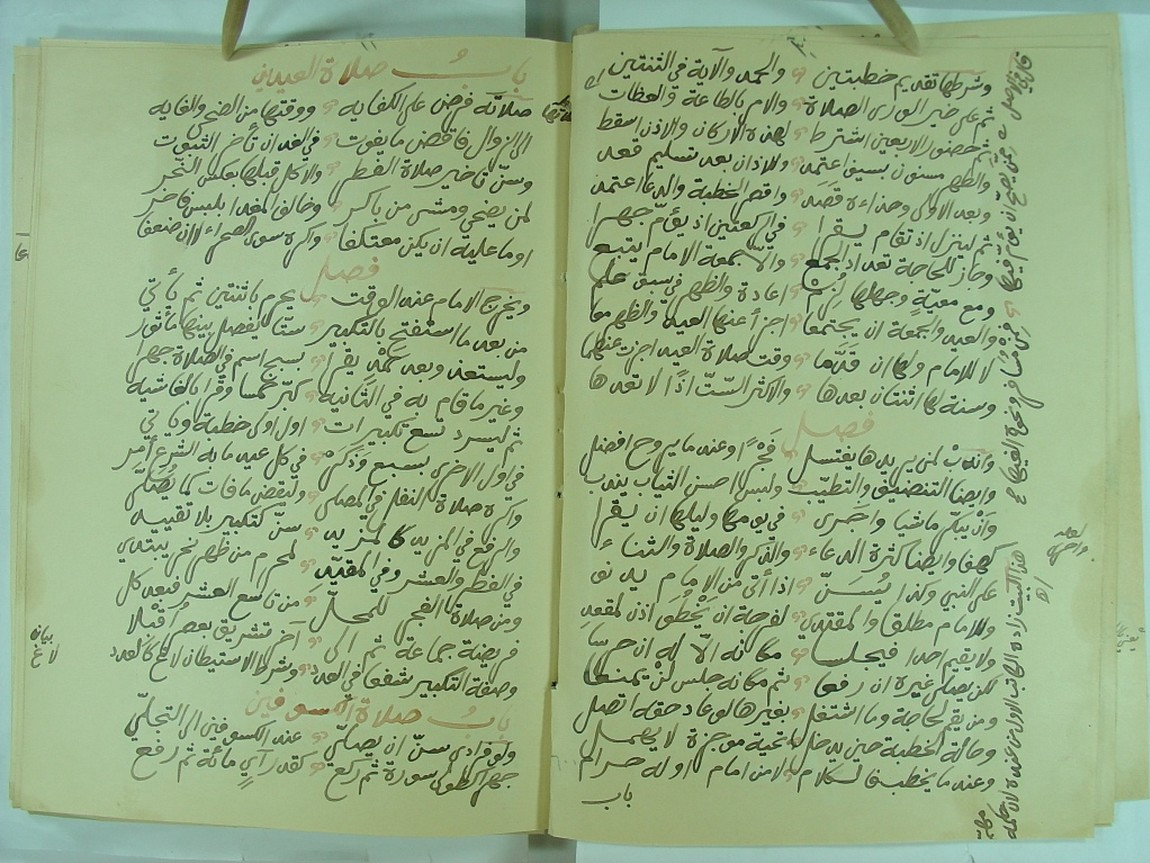 وشرطها تقديم خطبتين والحمد والآية في الثنتين
ثم على خير الورى الصلاة والامر بالطاعة والعظات
ثم حضور الاربعين اشترط لهذه الاركان والاذن اسقط
والطهر مسنون بسيف اعتمد والاذان بعد تسليم قعد
وبعد الاولى وحذاءه قصد واقصر الخطبة والدعا اعتمد
ثم لينزل اذ تقام يقرا في الركعتين اذ يؤم جهرا
وجاز للحاجة تعداد الجمع والا جمعة الامام يتبع
ومع معية وجهلها اعادة والظهر في سبق علم
والعيد والجمعة ان يجتمعا اجزأ عنها العيد والظهر معا
لا للامام ولها ان قدما وقت صلاة العيد اجزت عنهما
وسنة لها اثنتان بعدها والاكثر الست اذا لا تعدها
فصل
واندب لمن يريدها يغتسل فجرا وعند ما يروح افضل
وايضا التنضيف والتطيب ولبس احسن الثياب يندب
وأن يبكر ماشيا واحرى في يومها وليلها ان يقرا
كهفا وايضا كثرة الدعاء والذكر والصلاة والثناء
على النبي وكذا يسن اذا أتى من الامام يدنو
وللامام مطلقا والمقتدي لفرجة ان يخطو اذن لمقعد
ولا يقيم احدا فيجلسا مكانه الا له ان حرسا
لكن يصلي غيره ان رفعا ثم مكانه جلس لن تمنعا
ومن يقم لحاجة وما اشتغل بغيرها لو عاد حقه اتصل
وحالة الخطبة حين يدخل تحية موجزة لا يهمل
وعند ما يخطب فالكلام لا من امام او له حرام
باب
باب صلاة العيدين
صلاته فرض على الكفايه ووقتها من الضحى والغايه
الى الزوال فاقض ما يفوت في الغد ان تأخر الثبوت
وسن تأخير صلاة الفطر والاكل قبلها بعكس النحر
لمن يضحي ومشى من باكر وخالف المغدا بلبس فاخر
او ما عليه ان يكن معتكفا واكره سوى الصحراء لا ان ضعفا
فصل
ويخرج الامام عند الوقت يحرم باثنتين ثم يأتي
من بعد ما استفتح بالتكبير ستا ليفصل بينها مأثور
وليستعذ وبعد حمد يقرا بسبح اسم في الصلاة جهرا
وغير ما قام به في الثانيه كبر خمسا وقرا بالغاشيه
ثم ليسرد تسع تكبيرات اول اولى خطبة ويأتي
في اول الاخرى بسبع وذكر في كل عيد ما به الشرع أمر
واكره صلاة النفل في المصلى وليقض ما فات كما يصلى
والرفع في المزيد كالمزيد سن كتكبير بلا تقييد
في الفطر والعشر وفي المقيد لمحرم من ظهر نحر يبتدي
ومن صلاة الفجر للمحل من تاسع العشر فبعد كل
فريضة جماعة ثم الى آخر تشريق بعصر اقبلا
وصفة التكبير شفعا في العدد وشرط الاستيطان
باب صلاة الكسوفين
ولو فرادى سن ان يصلي عند الكسوفين الى التجلي
جهرا كطولى سورة ثم ركع كقدر آي مائة ثم رفع
بيانه